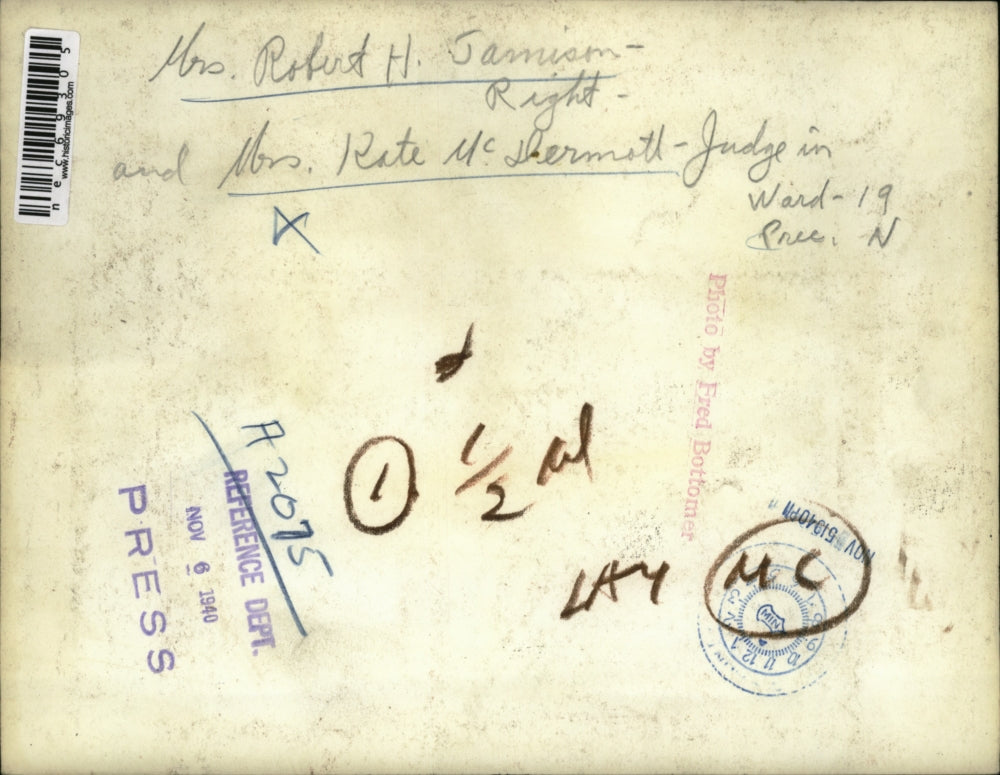 Mrs. Robert H. Jamison -
Right -
and Mrs. Kate Mc Dermott - Judge in
Ward - 19
Prec. N
necc69305
www.historicimages.com
Photo by Fred Bottomer
A 2075
REFERENCE DEPT.
NOV 6 1940
PRESS
1 1/2
NOV 5 1940 PM
MC
MIN
9 10 11 12 1 2 3